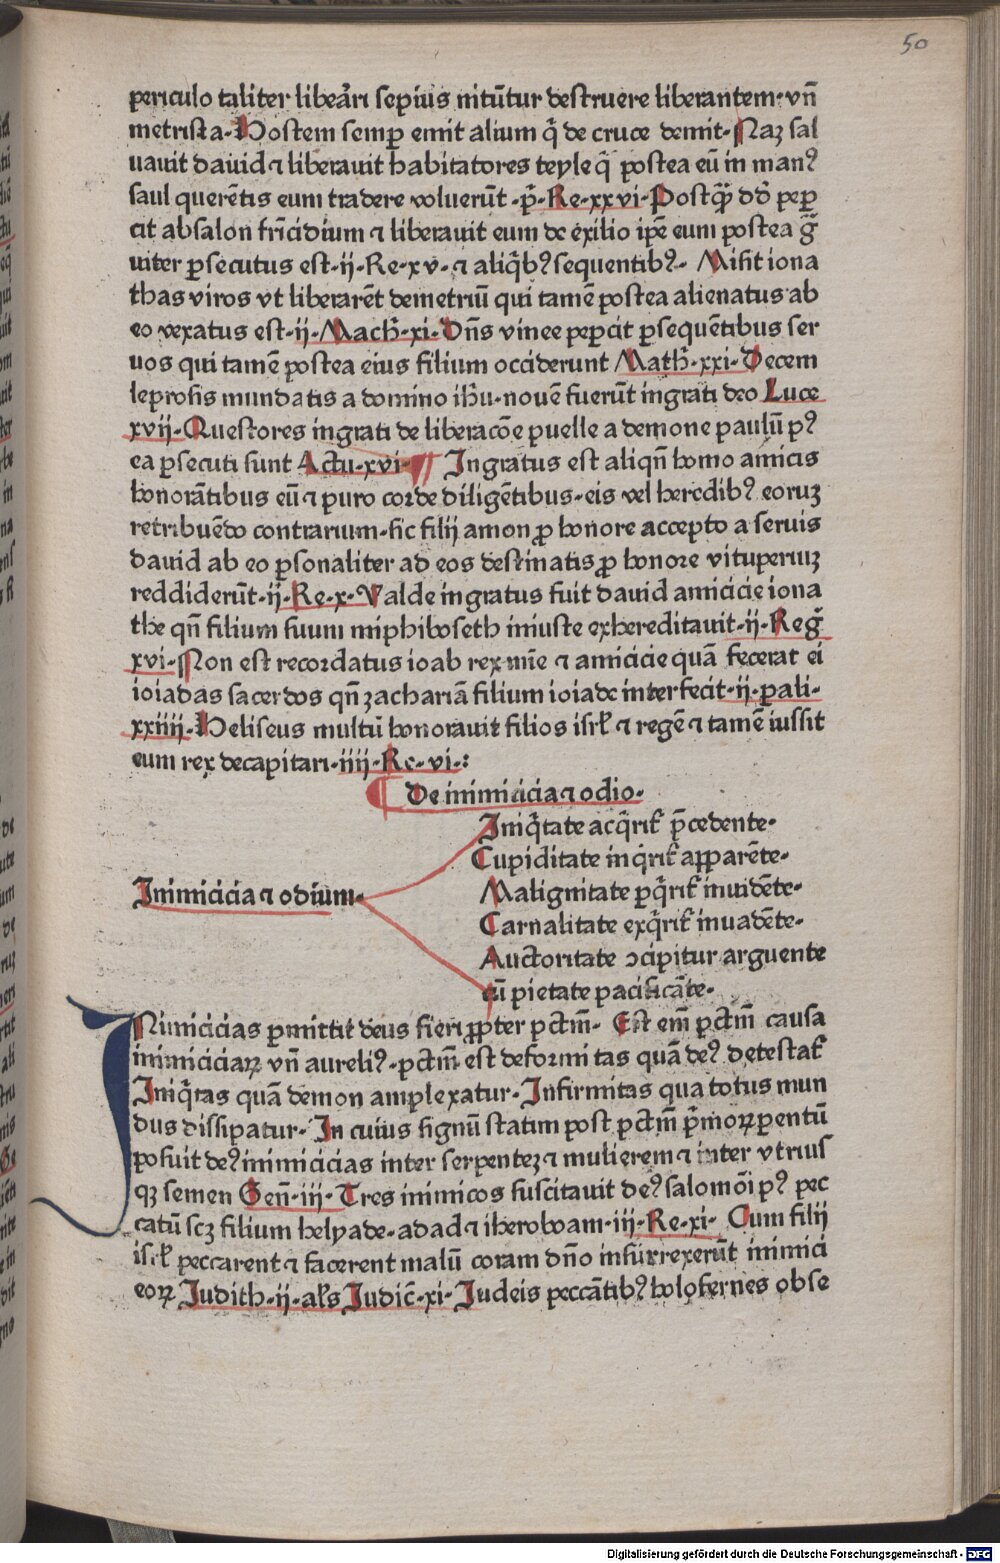 50
periculo taliter libeãri sepius nitũtur destruere liberantem·vñ
metrista·Hostem semꝑ emit alium q̃ de cruce demit·Naȝ sal
uauit dauid ⁊ liberauit habitatores ceyle q̃ postea eũ in manꝰ
saul querẽtis eum tradere voluerũt·p̃·Re·xxvi·Postꝙ̃ dd̃ peꝑ
cit absalon fr̃icidium ⁊ liberauit eum de exilio ip̃e eum postea g̃
uiter ꝑsecutus est·ij·Re·xv·⁊ aliq̃bꝰ sequentibꝰ· Misit iona
thas viros vt liberarẽt demetriũ qui tamẽ postea alienatus ab
eo vexatus est·ij·Mach̃·xi·Dñs vinee peꝑcit ꝑsequẽtibus ser
uos qui tamẽ postea eius filium occiderunt Math̃·xxi·Decem
leprosis mundatis a domino ih̃u·nouẽ fuerũt ingrati deo Luce
xvij·Questores ingrati de liberacõe puelle a demone paulũ pꝰ
ea ꝑsecuti sunt Actu·xvi·¶ Ingratus est aliqñ homo amicis
honorãtibus eũ ⁊ puro corde diligẽtibus·eis vel heredibꝰ eoruȝ
retribuẽdo contrarium·sic filij amon ꝓ honore accepto a seruis
dauid ab eo ꝑsonaliter ad eos destinatis ꝓ honore vituperiuȝ
reddiderũt·ij·Re·x·Valde ingratus fuit dauid amicicie iona
the qñ filium suum miphiboseth iniuste exhereditauit·ij·Reg̃
xvi·Non est recordatus ioab rex mĩe ⁊ amicicie quã fecerat ei
ioiadas sacerdos qñ zachariã filium ioiade interfecit·ij·pali·
xxiiij·Heliseus multũ honorauit filios isrl̃ ⁊ regẽ ⁊ tamẽ iussit
eum rex decapitari·iiij·Re·vi·:
¶ De inimicicia ⁊ odio·
Iniq̃tate acq̃rit̃ p̃cedente·
Cupiditate inq̃rit̃ aꝑparẽte·
Inimicicia ⁊ odium·
Malignitate ꝑq̃rit̃ inuidẽte·
Carnalitate exq̃rit̃ inuadẽte·
Auctoritate ↄcipitur arguente
cũ pietate pacificãte·
INimicicias ꝑmittit̃ deus fieri ꝓpter pctm̃· Est em̃ pctm̃ causa
inimiciciaꝝ vñ aureliꝰ·pctm̃ est deformitas quã deꝰ detestat̃
Iniq̃tas quã demon amplexatur·Infirmitas qua totus mun
dus dissipatur·In cuius signũ statim post pctm̃ p̃moꝝ parentũ
posuit deꝰ inimicicias inter serpentez ⁊ mulierem ⁊ inter vtrius
qȝ semen Geñ·iij·Tres inimicos suscitauit deꝰ salomõi pꝰ pec
catũ scȝ filium helyade·adad ⁊ iheroboam·iij·Re·xi· Cum filij
isrl̃ peccarent ⁊ facerent malũ coram dño insurrexerũt inimici
eoꝝ Judith·ij·al̃s Judic̃·xi·Judeis peccãtibꝰ holofernes obse
Digitalisierung gefördert durch die Deutsche Forschungsgemeinschaft - DFG